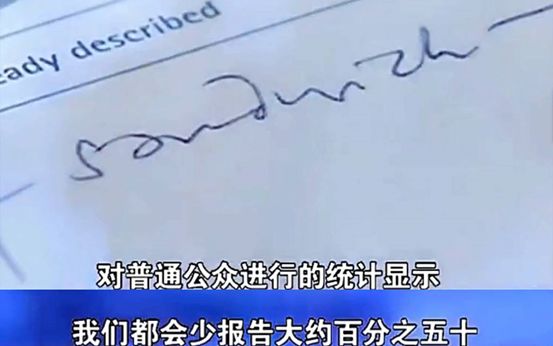 eady described
sandwich
对普通公众进行的统计显示
我们都会少报告大约百分之五十